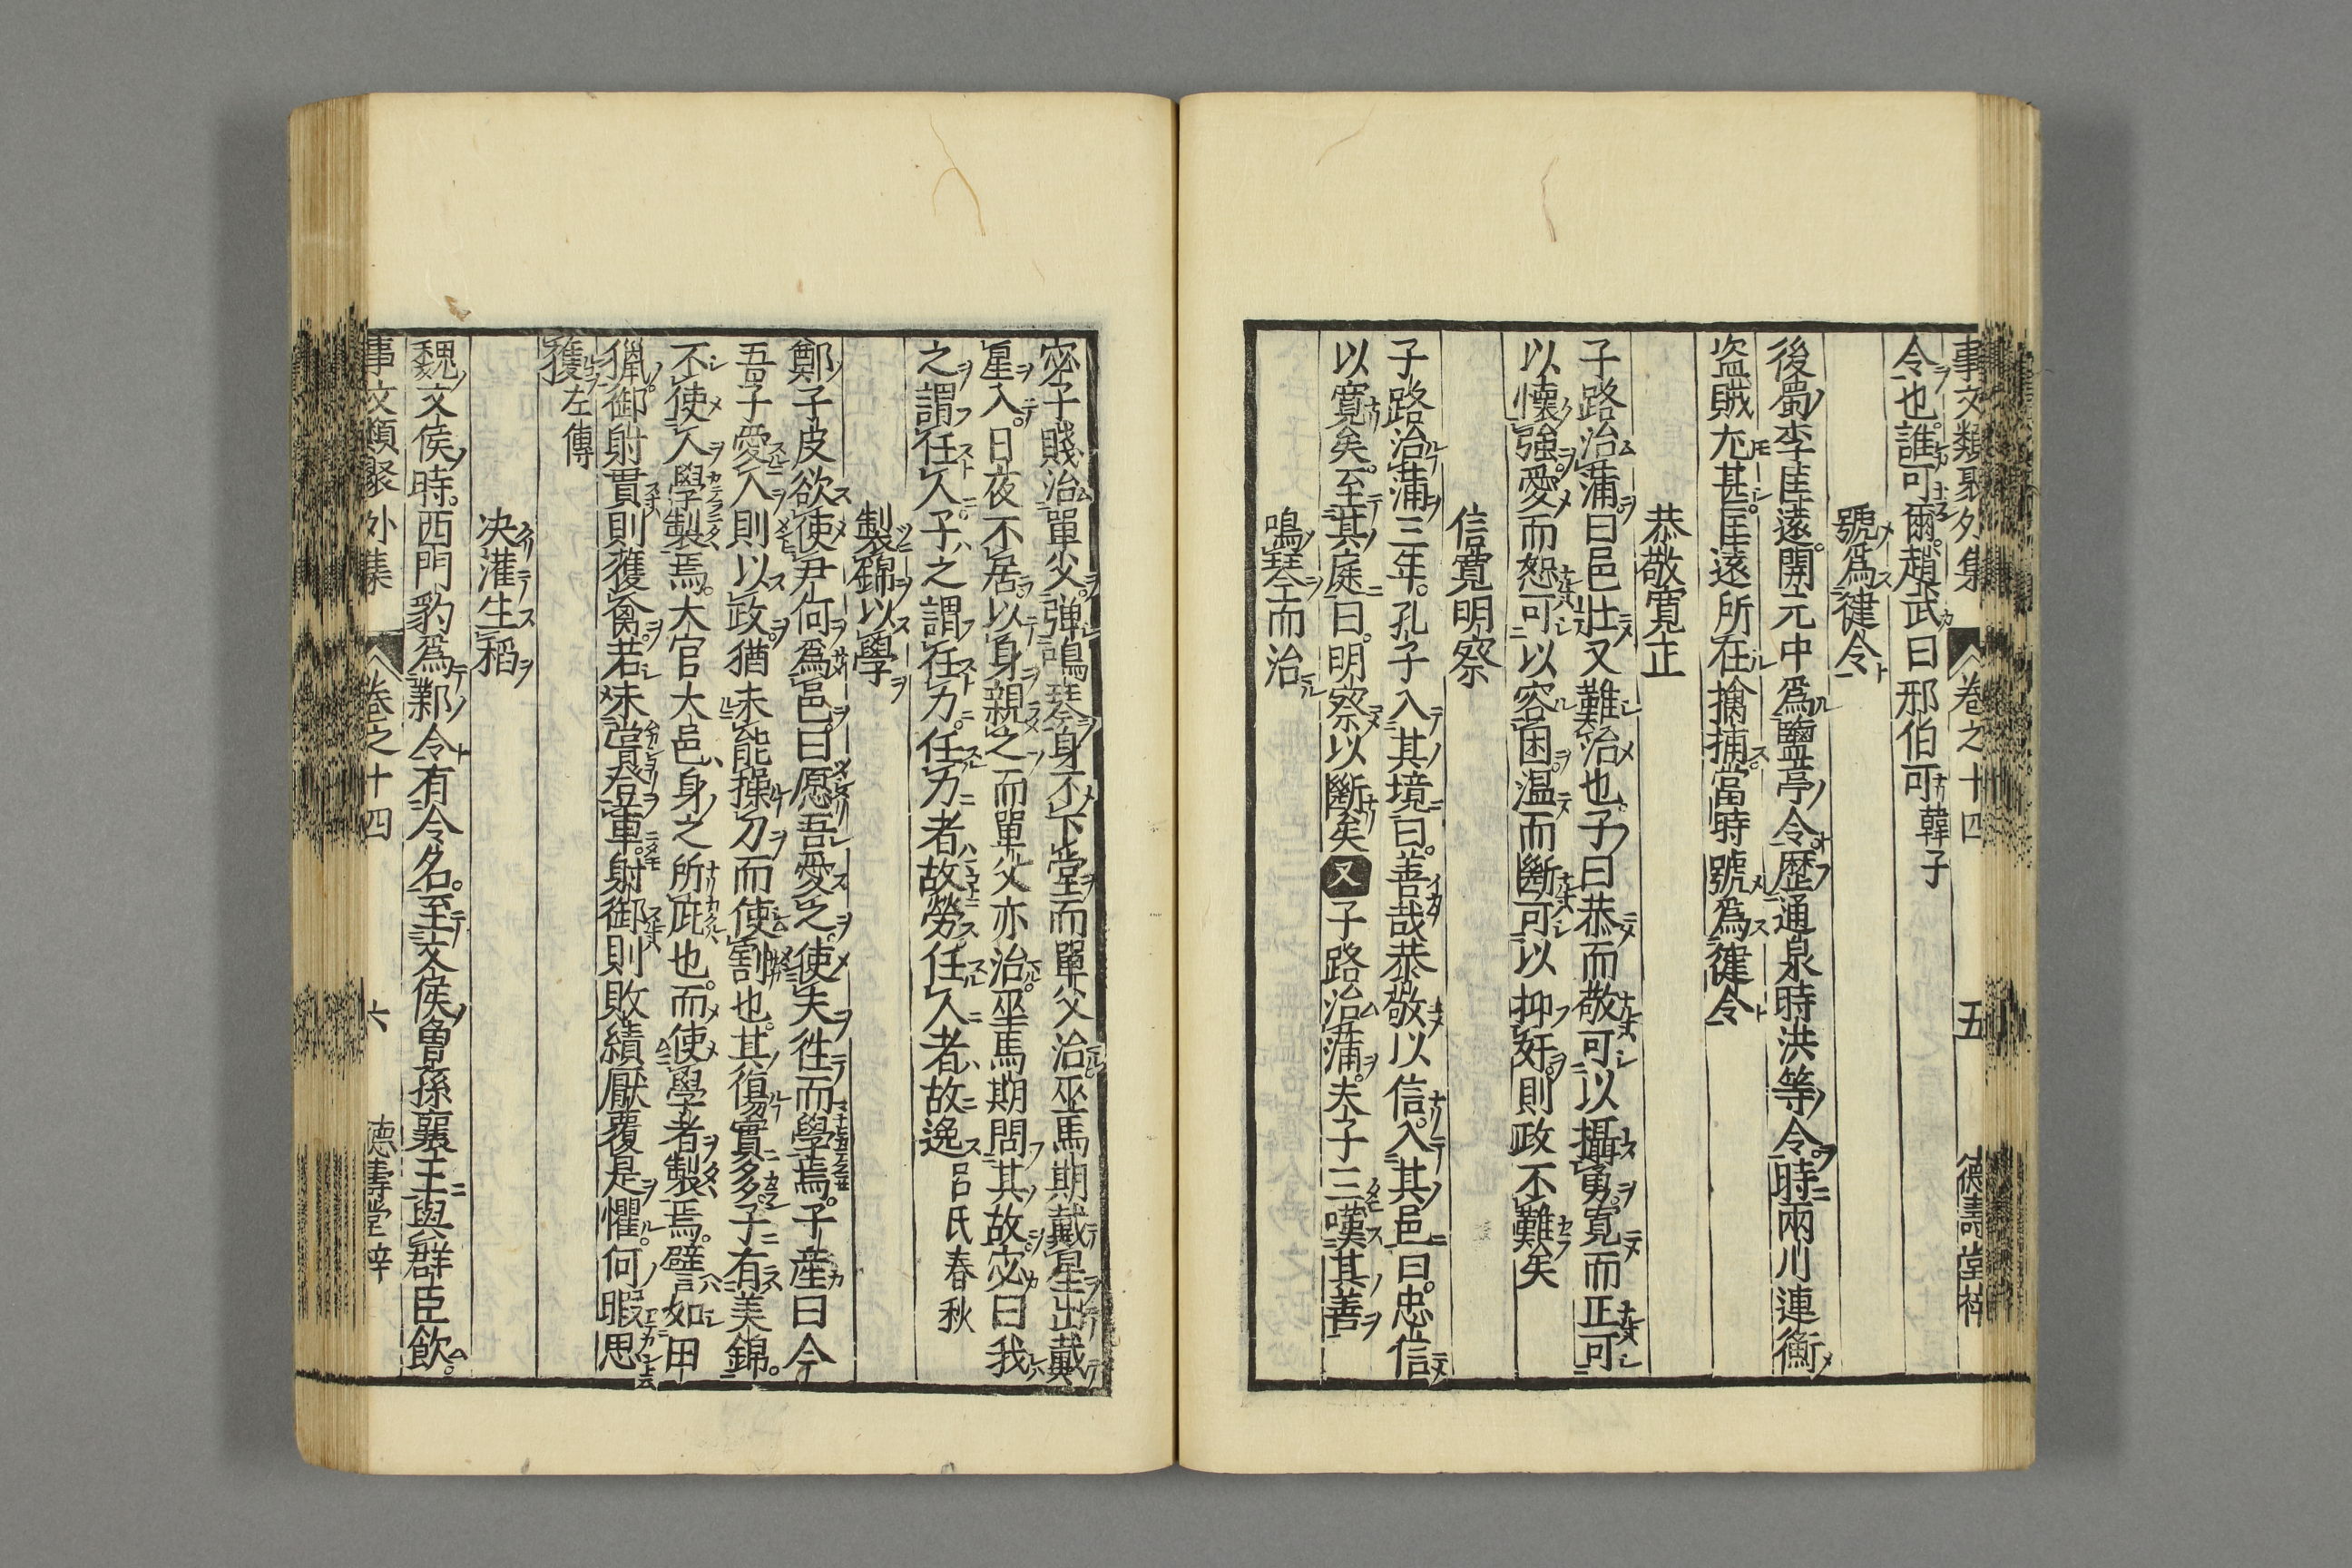 事文類聚外集 卷之十四 五 德壽堂梓
令也。誰可爾。趙武曰邢伯可韓子
號爲健令
後蜀李匡遠。開元中爲鹽亭令。歷通泉時洪等令時兩川連衡
盗賊尤甚。匡遠所在擒捕。當時號爲健令
恭敬寛正
子路治蒲曰邑壮又難治也。子曰恭而敬可以攝勇。寛而正可
以懷強。愛而恕可以容困。温而斷可以抑奸。則政不難矣
信寛明察
子路治蒲三年。孔子入其境曰。善哉恭敬以信。入其邑曰。忠信
以寛矣。至其庭曰。明察以斷矣又子路治蒲。夫子三嘆其善
鳴琴而治
宓子賤治單父。弾鳴琴身不下堂而單父治巫馬期戴星出戴
星入。日夜不居以身親之而單父亦治。巫馬期問其故宓曰我
之謂任人。子之謂任力。任力者故勞。任人者故逸呂氏春秋
製錦以學
鄭子皮欲使尹何爲邑。曰愿吾愛之。使夫徃而學焉。子産曰今
吾子愛人則以政。猶未能操刀而使割也。其傷實多。子有美錦。
不使人學製焉。大官大邑身之所庇也。而使學者製焉。譬如田
獵。御射貫則獲禽。若未嘗登車。射御則敗績厭覆是懼。何暇思
獲左傳
决灌生稻
魏文侯時。西門豹爲鄴令有令名。至文侯魯孫襄王與群臣飲。
事文類聚外集 卷之十四 六 德壽堂梓